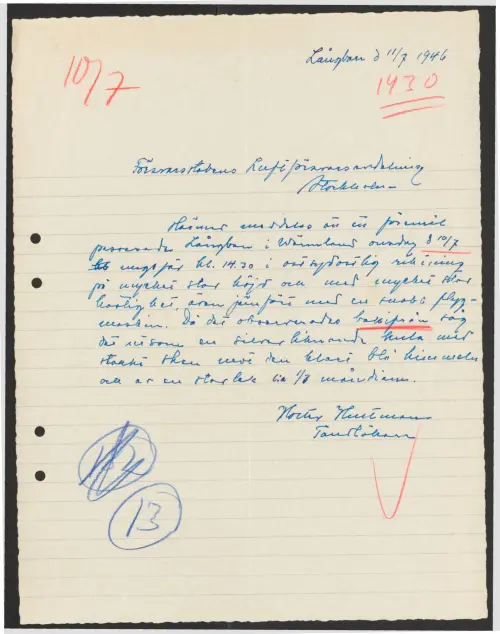 Långban d 11/7 1946
10/7
1430
Försvarsstabens Luftförsvarsavdelning
Stockholm
Härmed meddelas att ett föremål
passerade Långban i Värmland onsdag d 10/7
ungefär kl. 14.30 i ostsydostlig riktning
på mycket stor höjd och med mycket stor
hastighet, även jämfört med en snabb flyg-
maskin. Då det observerades bakifrån såg
det ut som en silverliknande kula med
starkt sken mot den klara blå himmeln
och av en storlek ca 1/3 måndiam.
Tandläkare
13